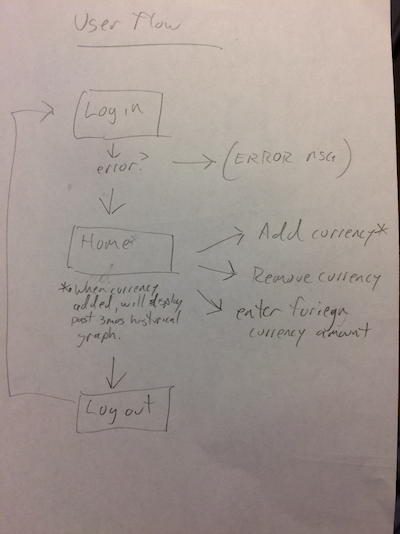 User flow
Log in
error?
(ERROR MSG)
Home*
Add currency*
Remove currency
enter foriegn
currency amount
* When currency
added, will display
past 3mos historical
graph.
Log out